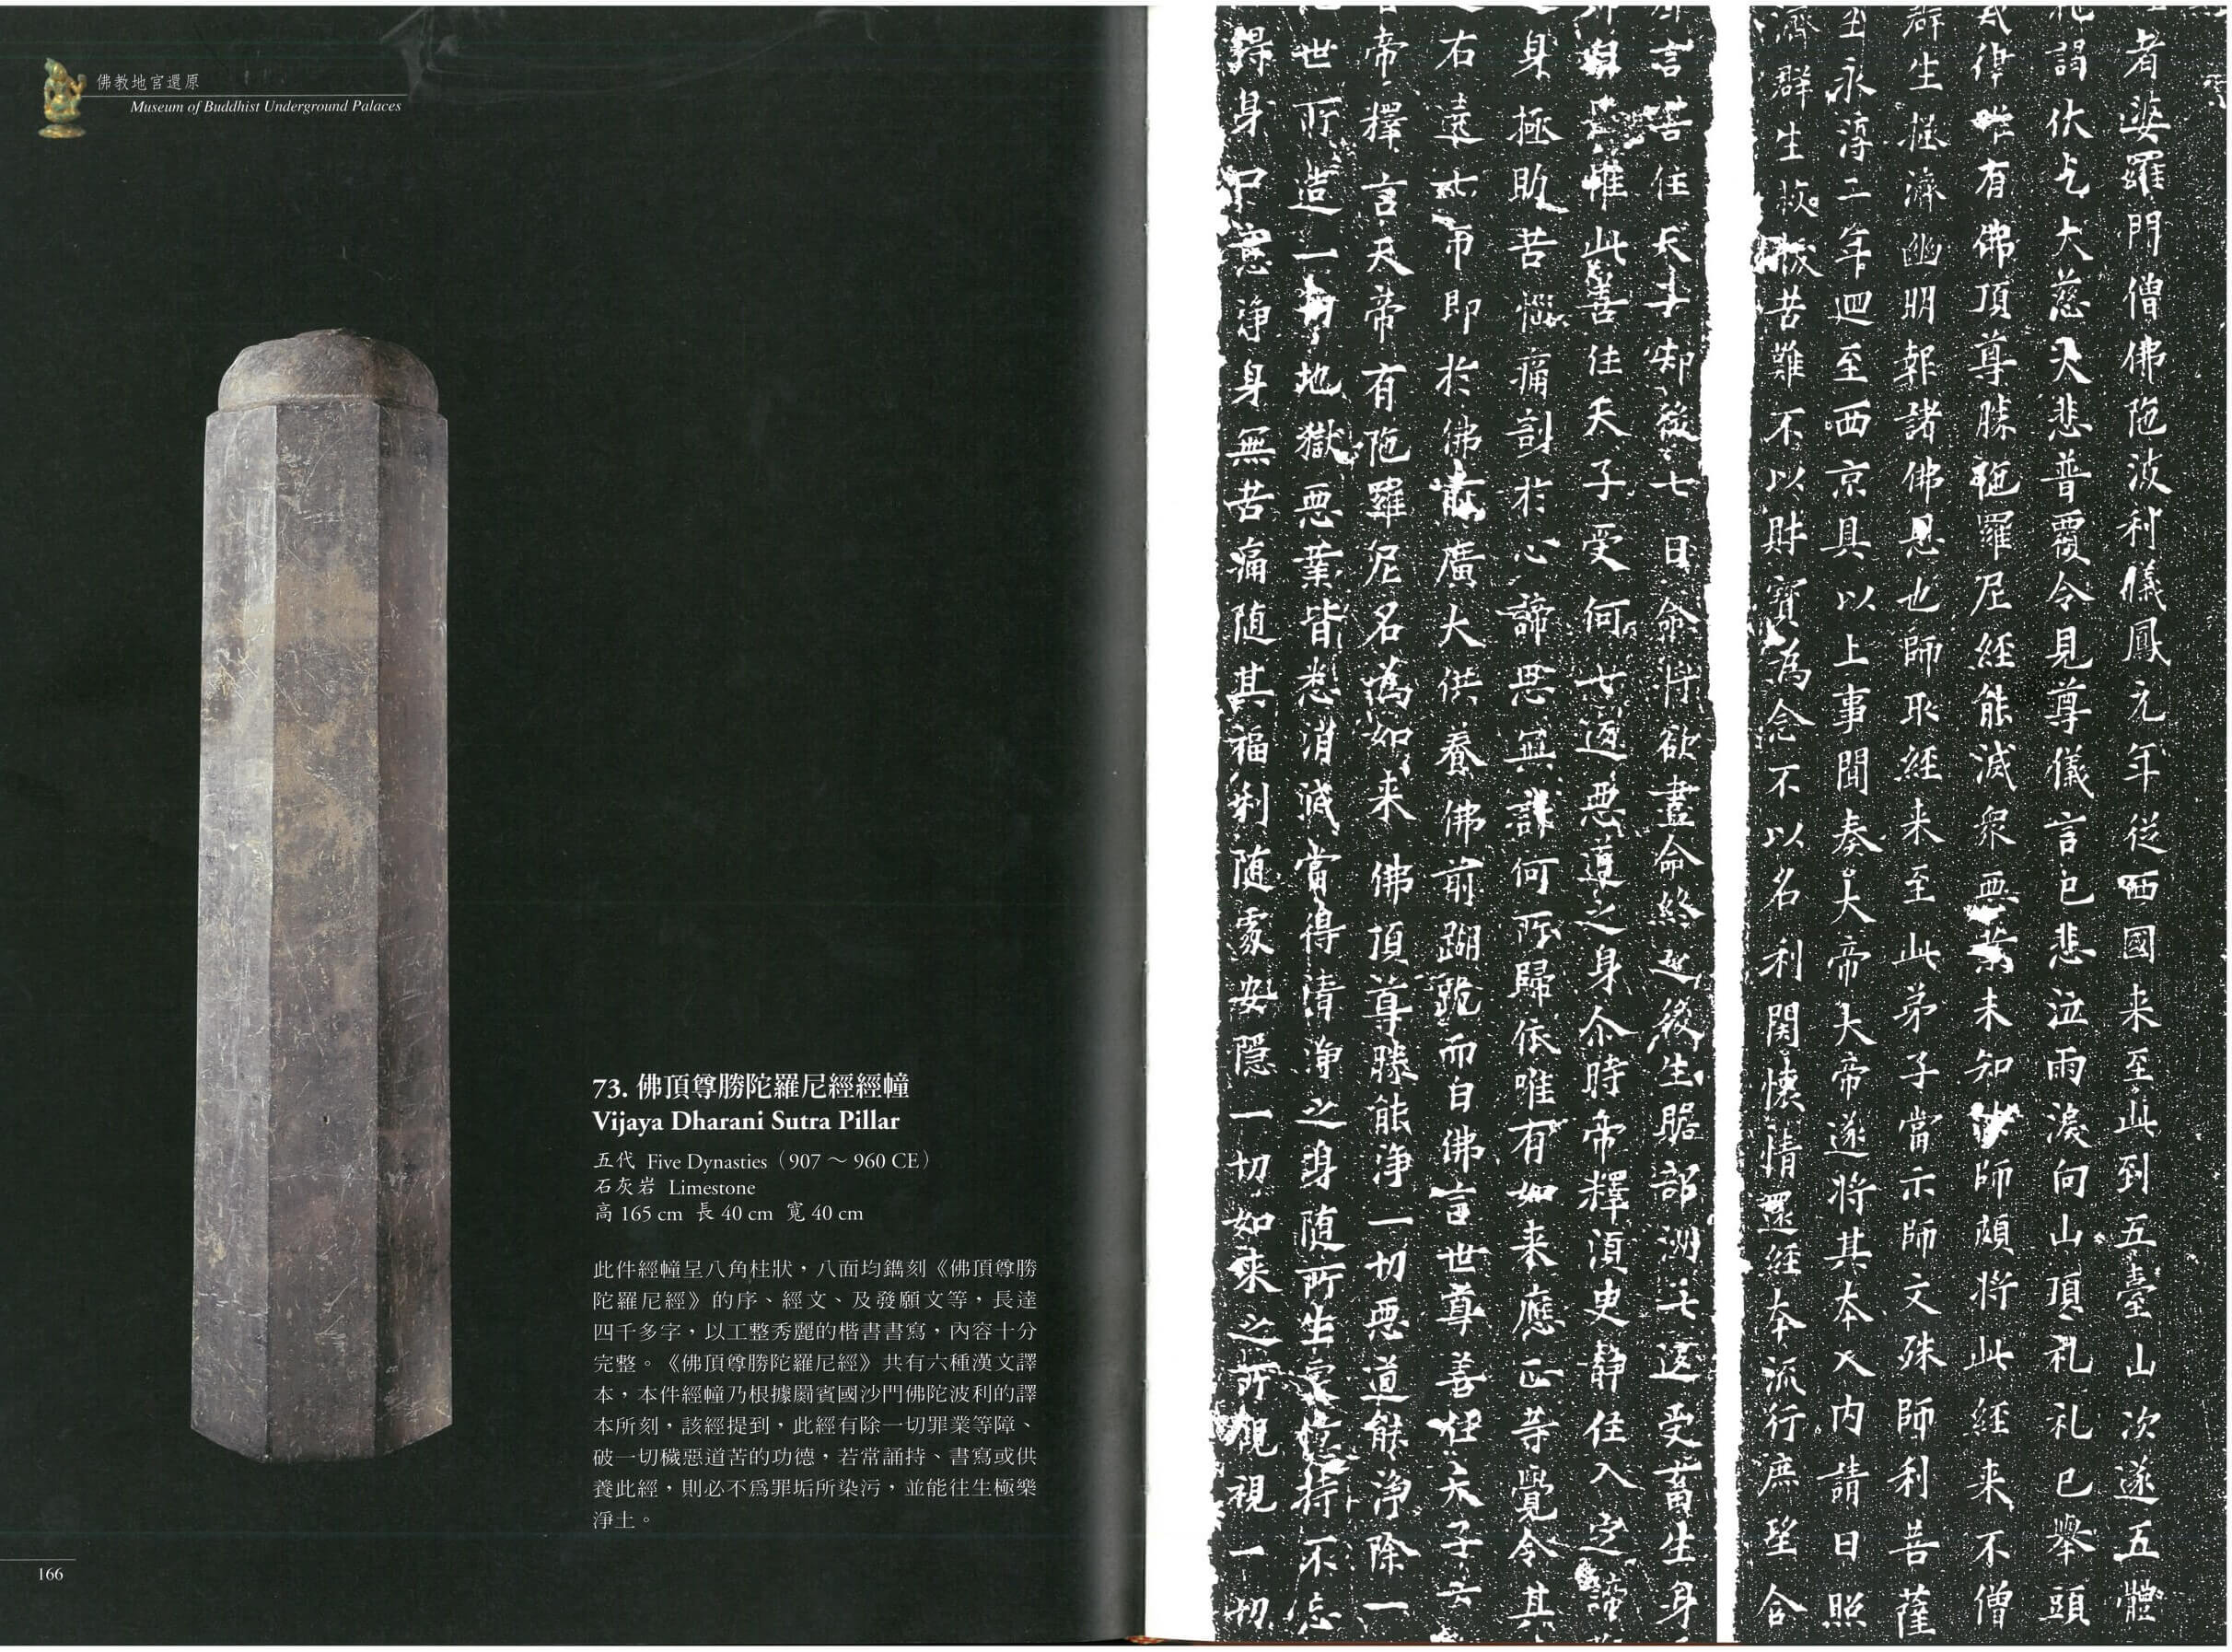 佛教地宮還原
Museum of Buddhist Underground Palaces
73. 佛頂尊勝陀羅尼經經幢
Vijaya Dharani Sutra Pillar
五代 Five Dynasties（907～960 CE）
石灰岩 Limestone
高 165 cm 長 40 cm 寬 40 cm
此件經幢呈八角柱狀，八面均鐫刻《佛頂尊勝
陀羅尼經》的序、經文、及發願文等，長達
四千多字，以工整秀麗的楷書書寫，內容十分
完整。《佛頂尊勝陀羅尼經》共有六種漢文譯
本，本件經幢乃根據罽賓國沙門佛陀波利的譯
本所刻，該經提到，此經有除一切罪業等障、
破一切穢惡道苦的功德，若常誦持、書寫或供
養此經，則必不爲罪垢所染污，並能往生極樂
淨土。
166
者婆羅門僧佛陁波利儀鳳元年從西國来至此到五臺山次遂五體
礼謁伏乞大慈大悲普覆令見尊儀言已悲泣雨淚向山頂礼礼已舉頭
律唯有佛頂尊勝陁羅尼經能滅衆惡業未知法師頗将此經来不僧
群生拯濟幽明報諸佛恩也師取經来至此弟子當示師文殊師利菩薩
至永淳二年迴至西京具以上事聞奏大帝大帝遂将其本入内請日照
濟群生救拔苦難不以財寶為念不以名利関懷情還經本流行庶望合
言善住天子却後七日命将欲盡命終之後生贍部洲七返受畜生身
唯此善住天子受何七返惡道之身尒時帝釋湏臾静住入定諦
身極助苦惱痛割於心諦思無計何所歸依唯有如来應正等覺令其
右遶七帀即於佛前廣大供養佛前𨄔跪而白佛言世尊善住天子云
帝釋言天帝有陁羅尼名為如来佛頂尊勝能淨一切惡道能淨除一
世所造一切地獄惡業皆悉消滅當得清淨之身随所生處憶持不忘
得身口意淨身無苦痛随其福利随處安隱一切如来之所觀視一切